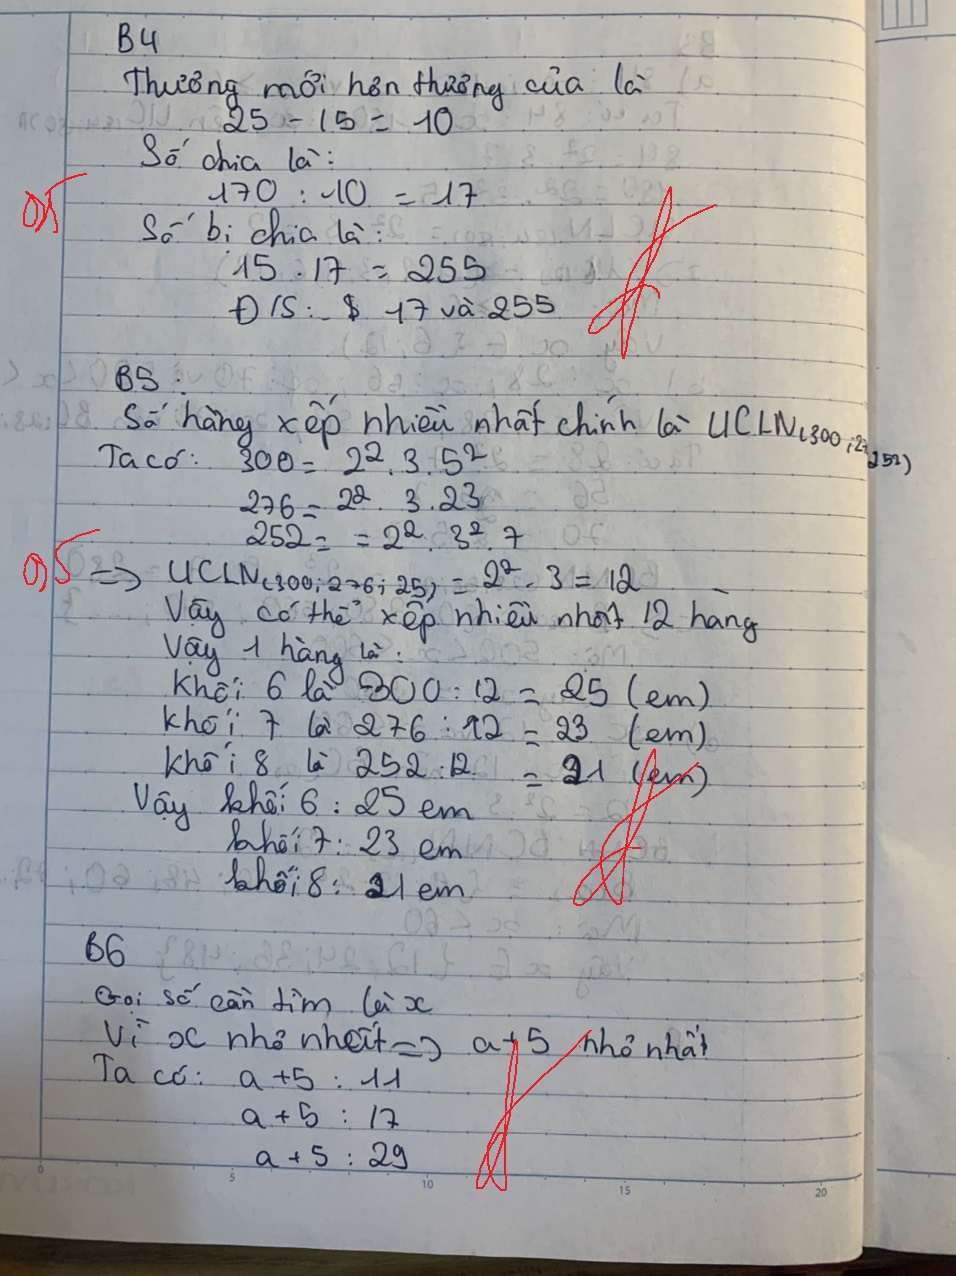 B4
Thương mới hơn thương của là
25 - 15 = 10
Số chia là:
170 : 10 = 17
0,5
Số bị chia là:
15 . 17 = 255
Đ/S: 17 và 255
B5 :
Số hàng xếp nhiều nhất chính là UCLN(300; 27 252)
Ta có: 300 = 2². 3. 5²
276 = 2² . 3 . 23
252 = = 2² . 3² . 7
0,5
=> UCLN(300; 276; 25) = 2² . 3 = 12
Vậy có thể xếp nhiều nhất 12 hàng
Vậy 1 hàng là:
Khối 6 là 300 : 12 = 25 (em)
khối 7 là 276 : 12 = 23 (em)
khối 8 là 252 : 12 = 21 (em)
Vậy khối 6 : 25 em
khối 7 : 23 em
khối 8 : 21 em
B6
Gọi số cần tìm là x
Vì x nhỏ nhất => a+5 nhỏ nhất
Ta có: a +5 : 11
a +5 : 17
a +5 : 29
0 5 10 15 20